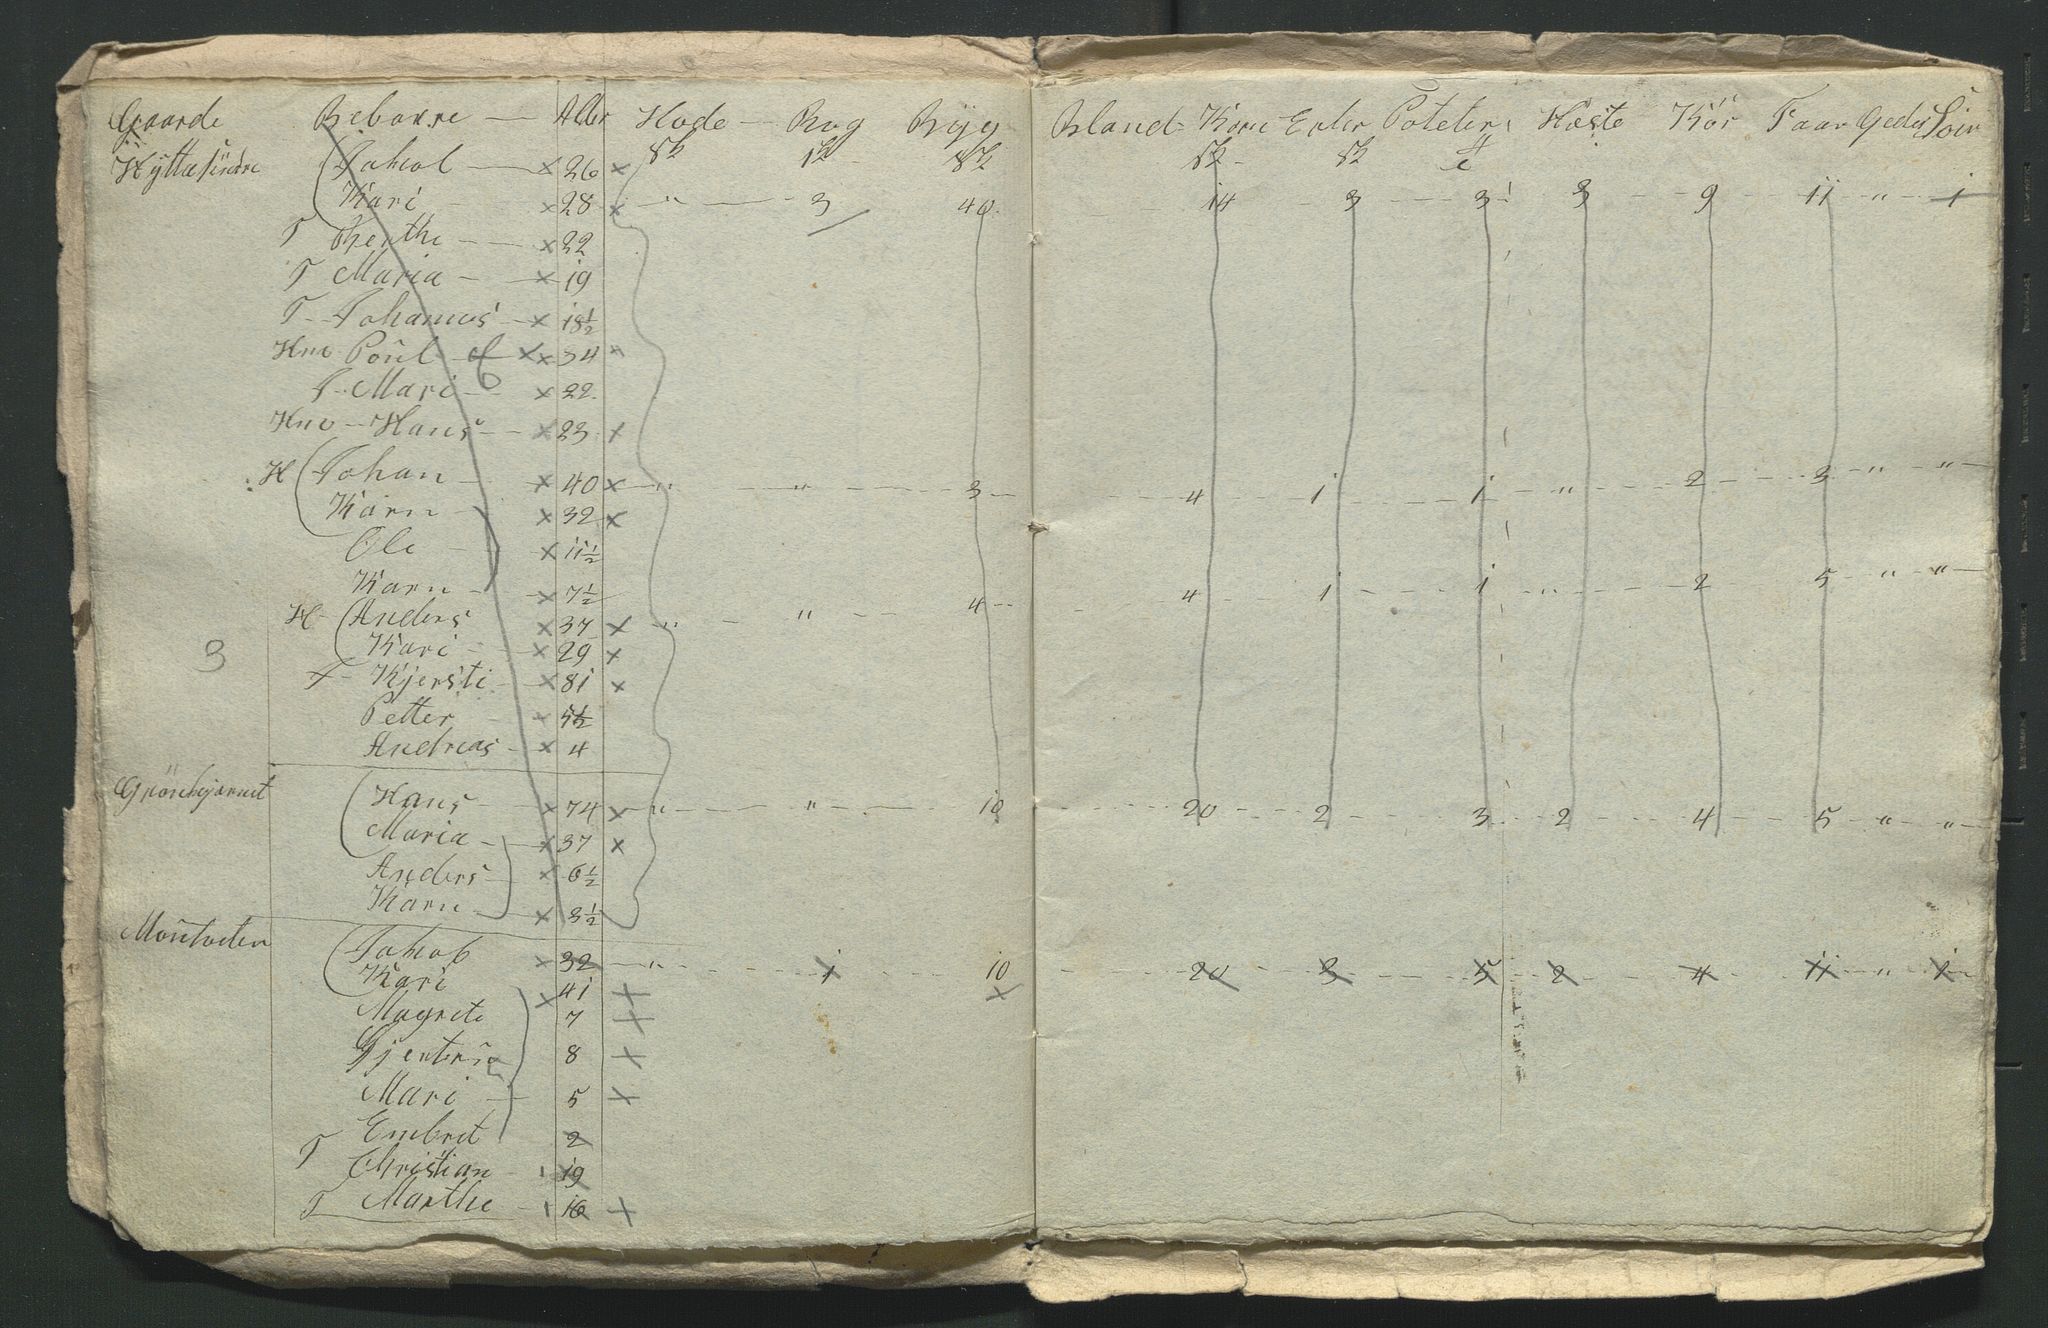 Gaarde Beboere — Alder Hvde — Rug Byg Bland-Korn Erter Poteter Hæste Kör Faar Geder Svin
Hytta
Jakob — 26
Kari 28 " — 3 40 14 3 3 3 9 11 " 1
T Berthe — 22
T Maria — 19
T Johannes — 18½
Hno Poul — 34
T Mari 22
Hno — Hans — 23
H Johan — 40 " " 3 4 1 1 " 2 3 " "
Karn 32
Ole 11½
Karn 7½
H Anders 37 " " 4 4 1 1 " 2 5 " "
Kari 29
3
T Kjersti — 81
Petter 5½
Andreas 4
Grönkjærnet Hans 74 " " 10 20 2 3 2 4 5 " "
Maria 37
Anders 6½
Karn 3½
Jakob 32 " 1 10 20 3 5 2 4 11 " 1
Kari 41
Magrete 7
8
Mari 5
Embret 2
T Christian 19
T Marthe 16